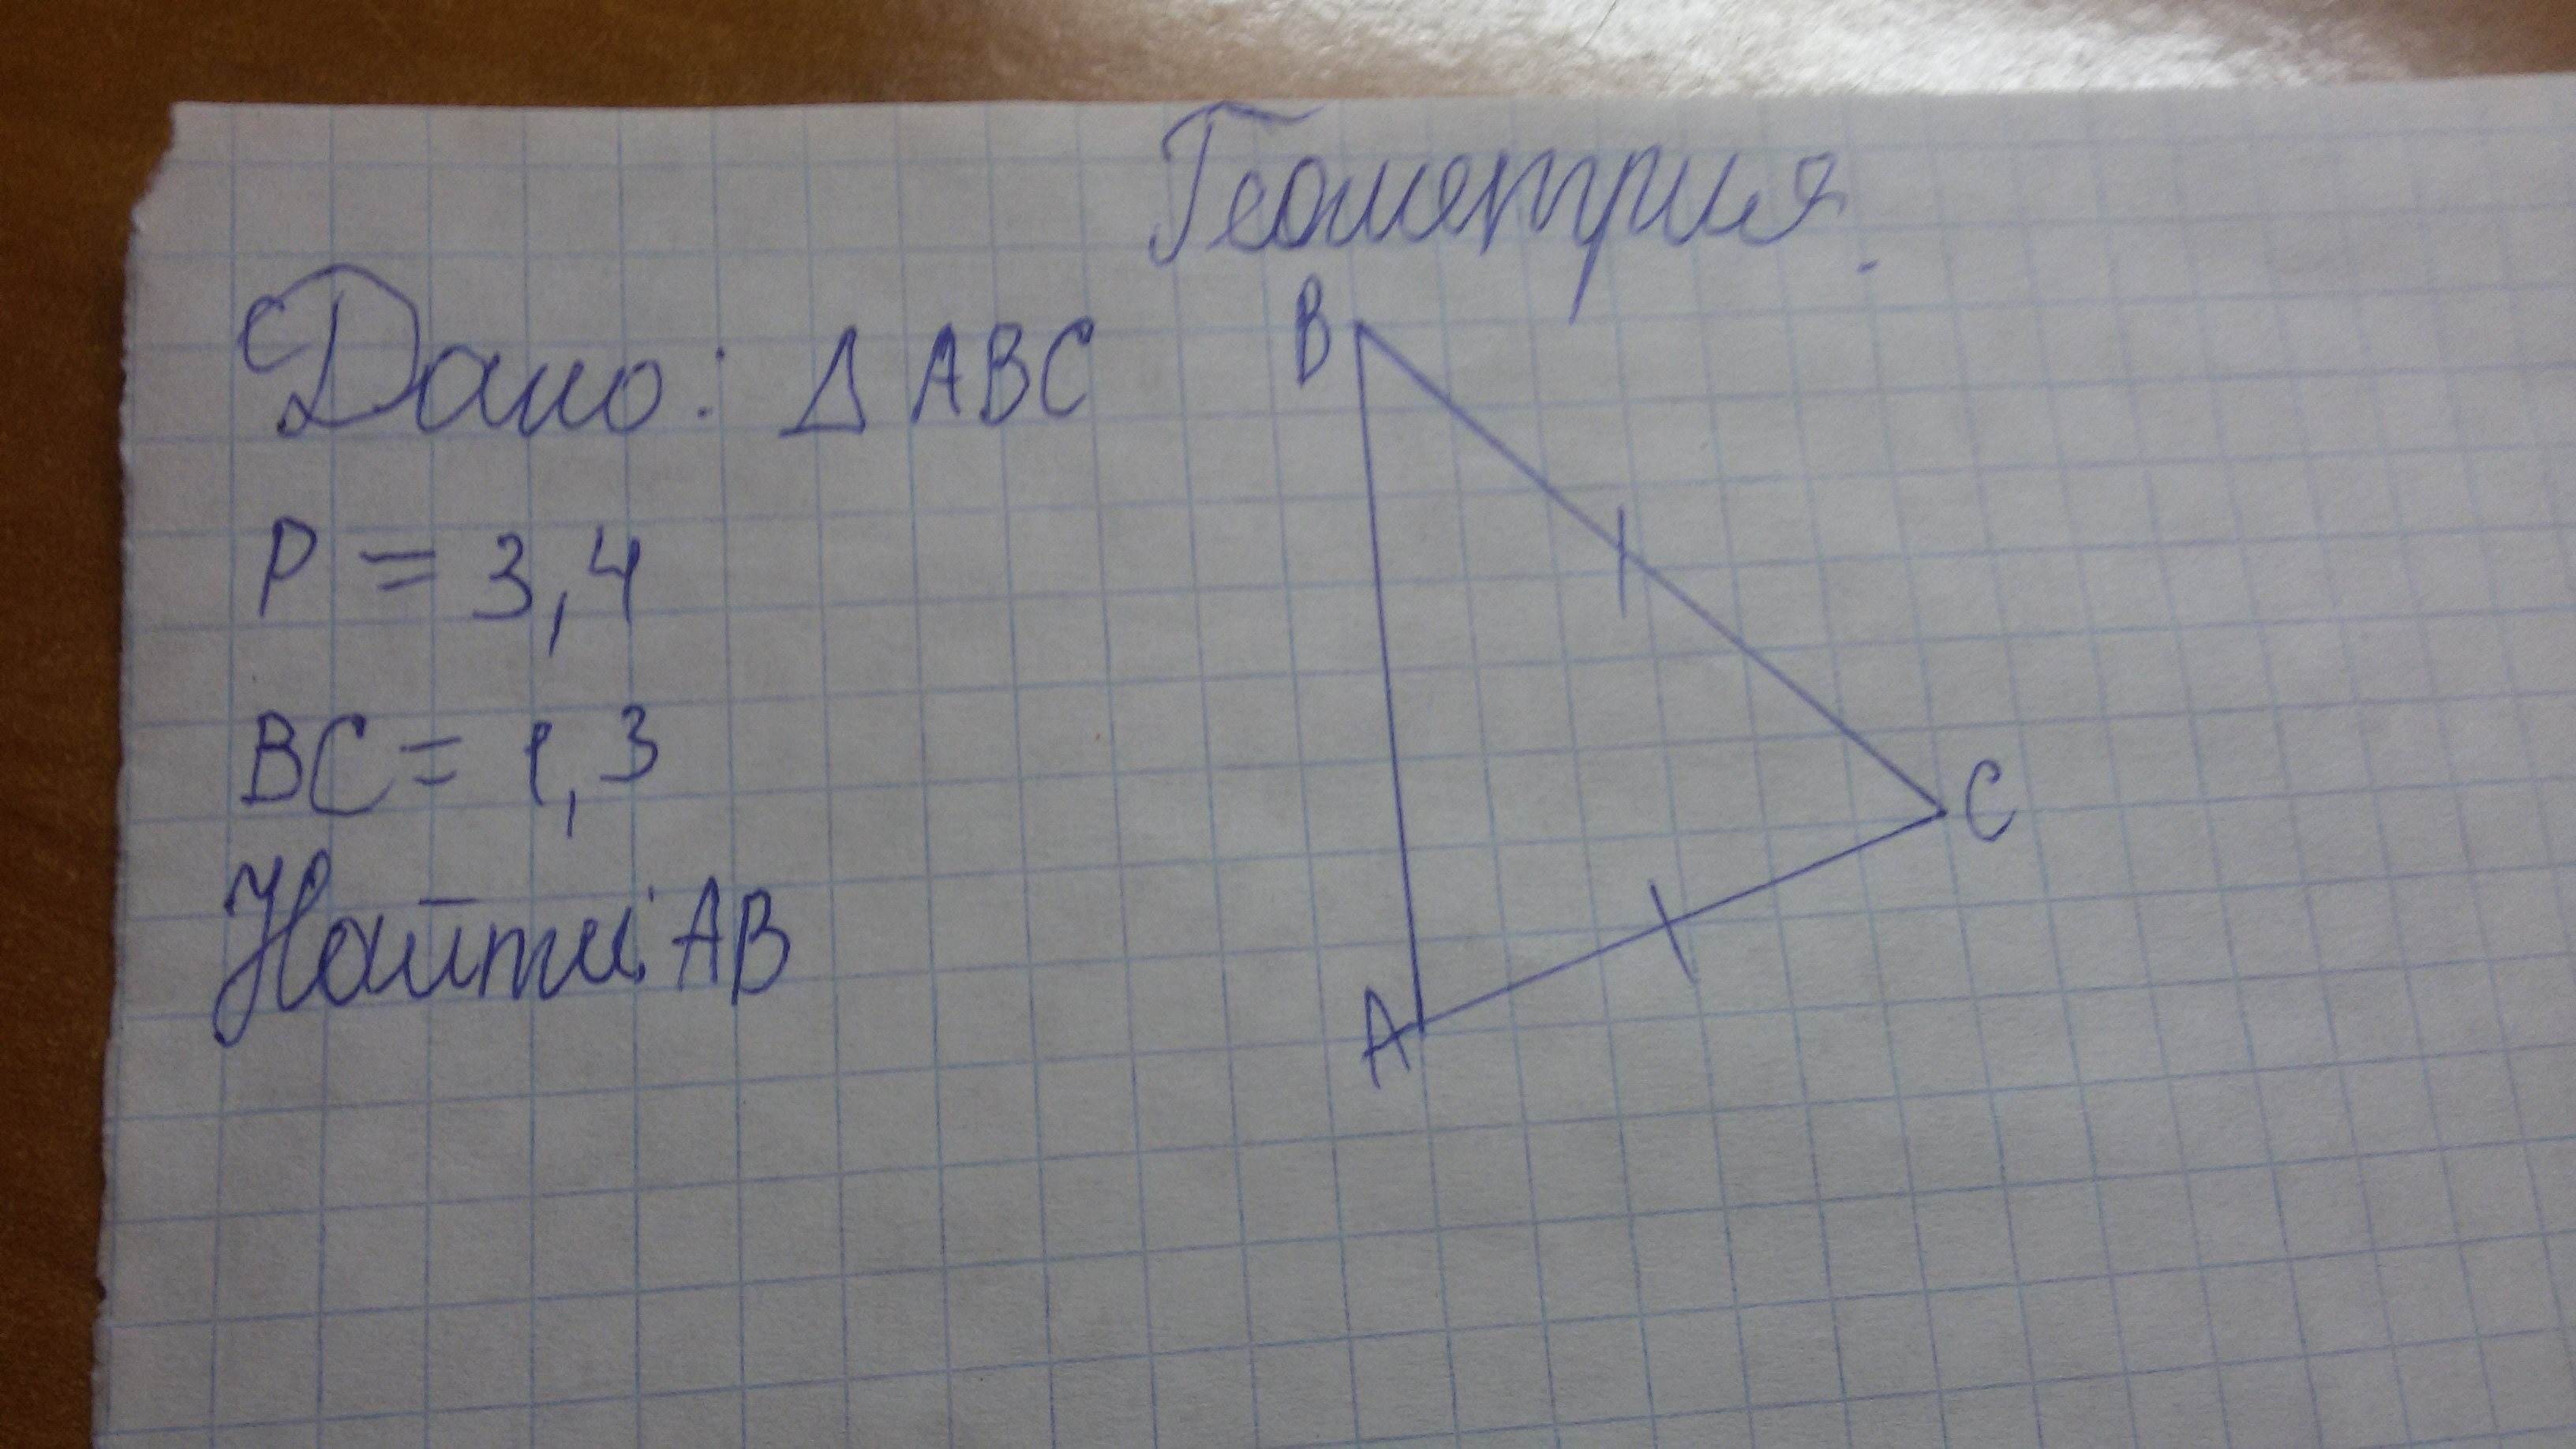 Геометрия.
Дано: Δ ABC
P = 3,4
BC = 1,3
Найти: AB
B
C
A